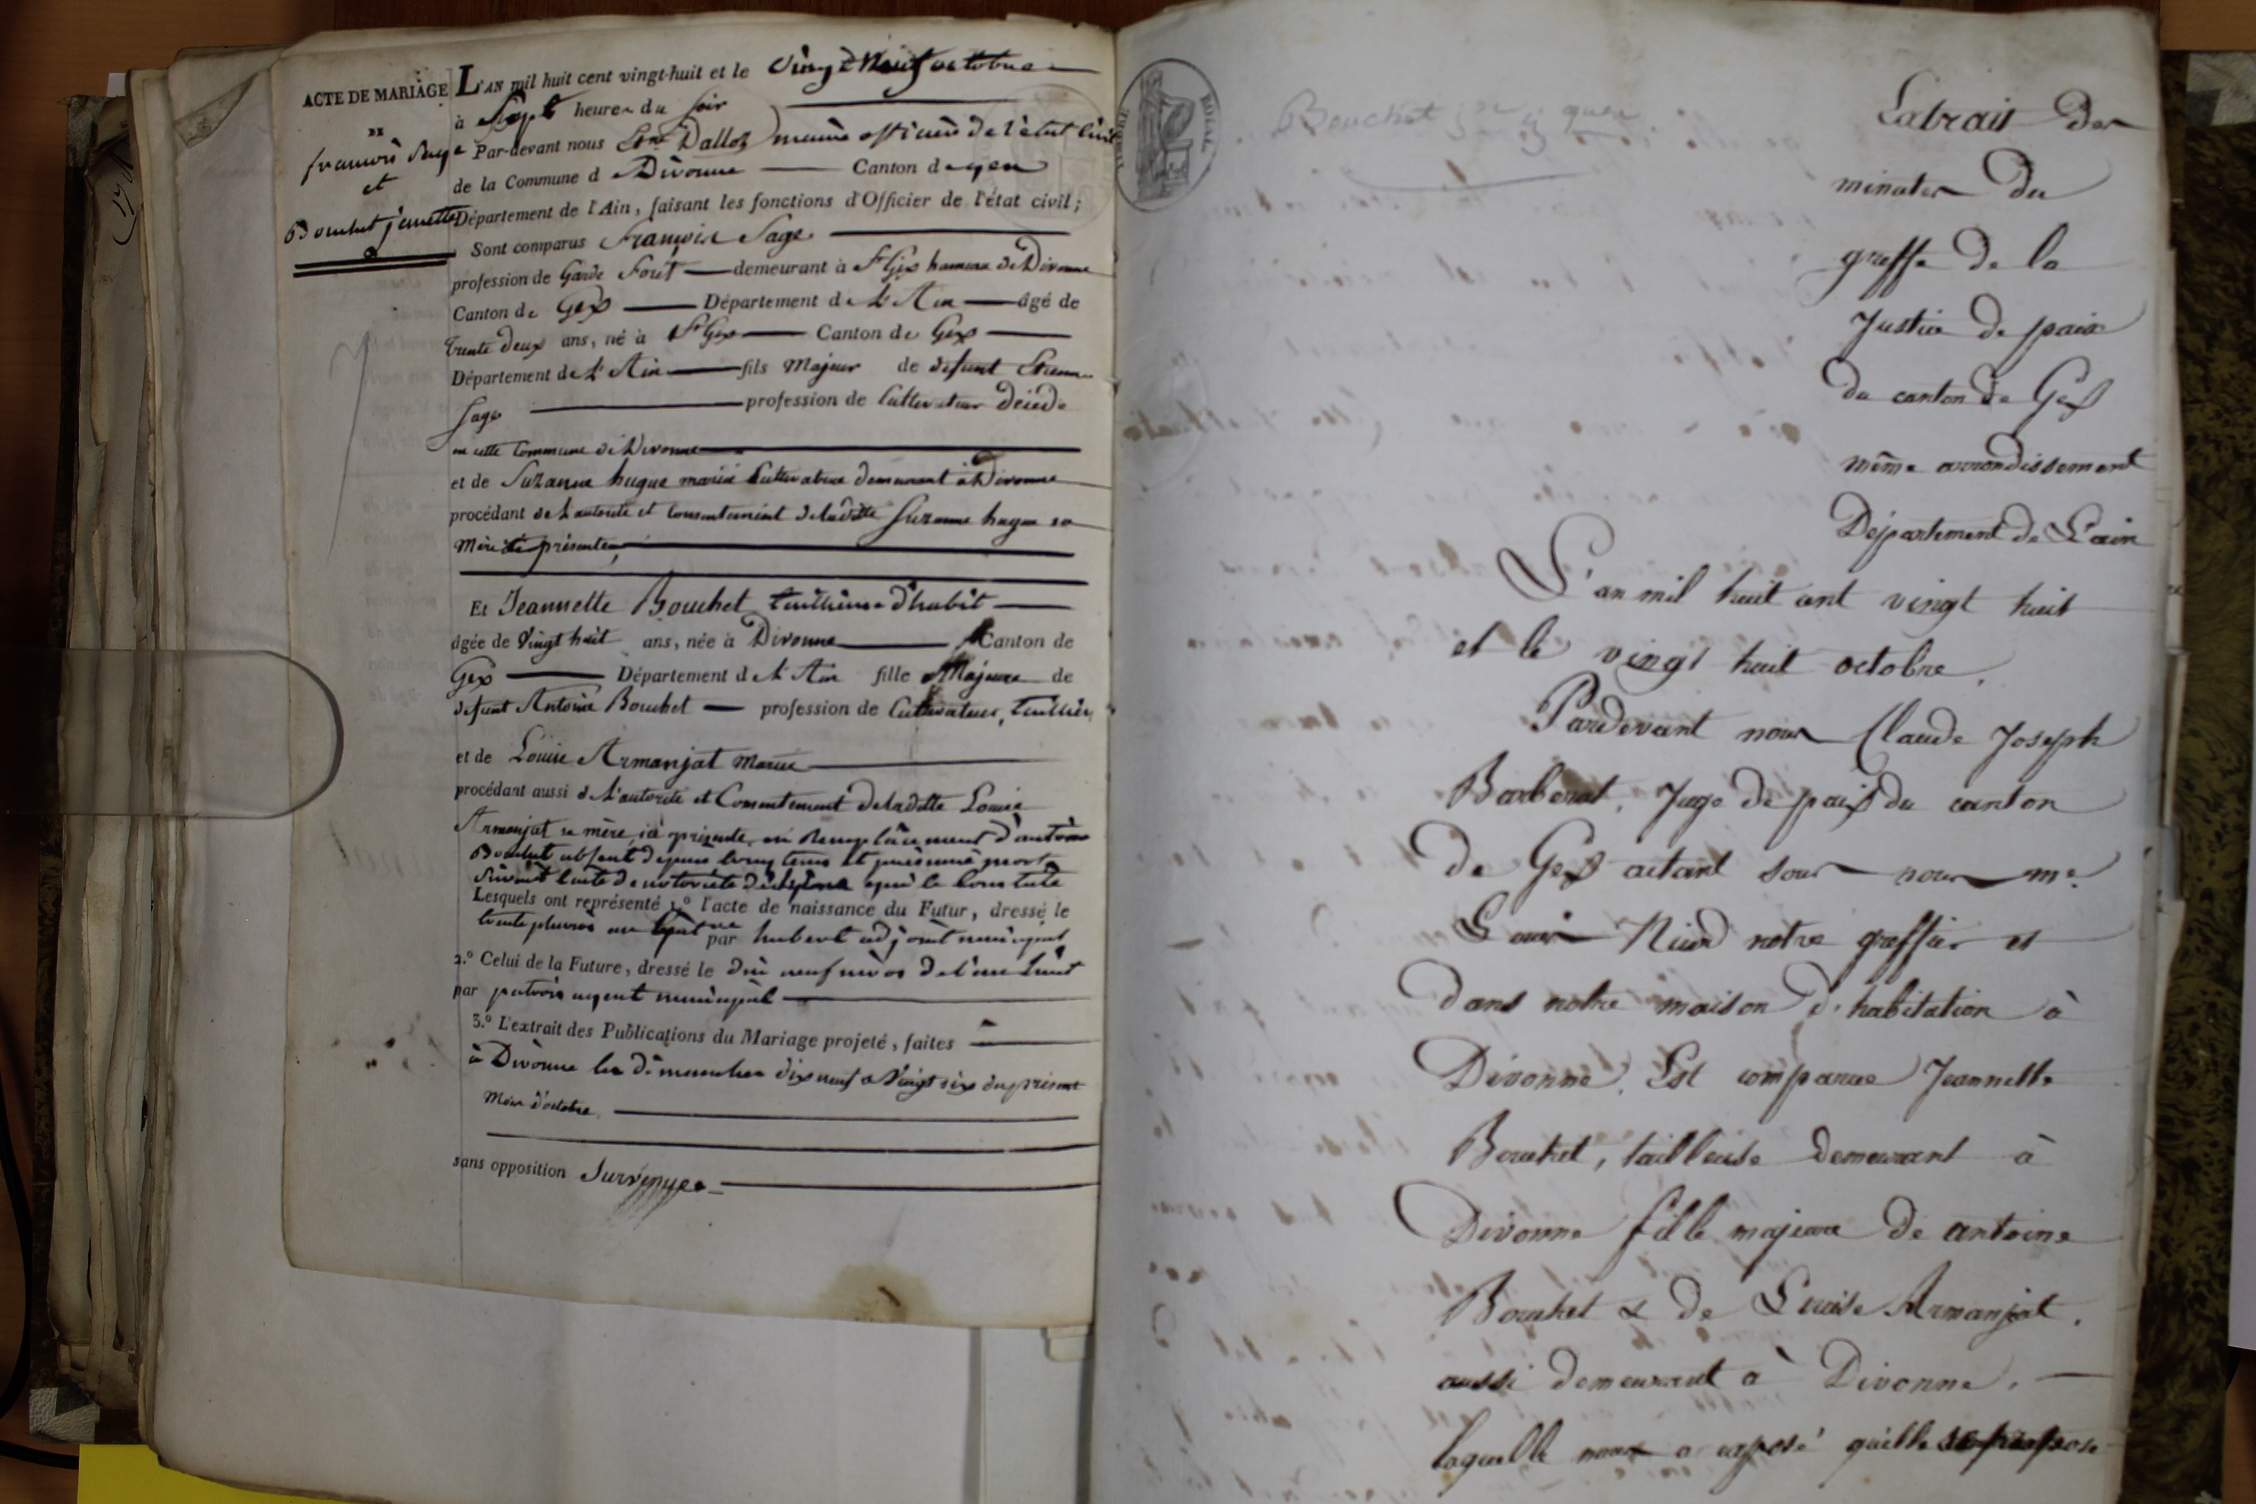 ACTE DE MARIAGE
DE
françois Sage
et
Bouchet jeanette
L'AN mil huit cent vingt-huit et le vingt Neuf octobre
à Sept heures du soir
Par-devant nous Dalloz maire officier de l'état Civil
de la Commune d Divonne Canton de gex
Département de l'Ain, faisant les fonctions d'Officier de l'état civil;
Sont comparus François Sage
profession de Garde Forêt demeurant à St Gix hameau de Divonne
Canton de Gex Département de L'Ain âgé de
trente deux ans, né à St Gix Canton de Gex
Département de L'Ain fils Majeur de defunt Etienne
Sage profession de Cultivateur décédé
en cette Commune de Divonne
et de Suzanne hugue mariée Cultivatrice demeurant à Divonne
procédant de L'autorité et consentement de ladite Suzanne hugue sa
Mère ici présente,
Et Jeannette Bouchet tailleuse d'habit
âgée de Vingt huit ans, née à Divonne Canton de
Gex Département d L'Ain fille Majeure de
defunt Antoine Bouchet profession de Cultivateur,
et de Louise Armanjat Mariée
procédant aussi de L'autorité et Consentement de ladite Louise
Armanjat sa mère, ici présente, en Remplacement d'antoine
Bouchet absent depuis longtems et présumé mort
suivant l'acte de notoriété qui le constate
Lesquels ont représenté 1.º l'acte de naissance du Futur, dressé le
trente pluviôse an par hubert adjoint municipal
2.º Celui de la Future, dressé le dix neuf nivos de l'an huit
par agent municipal
3.º L'extrait des Publications du Mariage projeté, faites
à Divonne les dimanches dix neuf & Vingt six du présent
Mois d'octobre.
sans opposition Survenue
TIMBRE ROYAL
Bouchet
Extrait des
minutes du
greffe de la
Justice de paix
du canton de Gex
même arrondissement
Département de L'ain
L'an mil huit cent vingt huit
et le vingt huit octobre,
Pardevant nous Claude Joseph
Barberat, Juge de paix du canton
de Gex actant sous nous me.
Louis Nicod notre greffier et
dans notre maison d'habitation à
Divonne, Est comparue Jeannette
Bouchet, tailleuse demeurant à
Divonne fille majeure de antoine
Bouchet & de Louise Armanjat,
aussi demeurant à Divonne,
laquelle nous a exposé quelle se propose